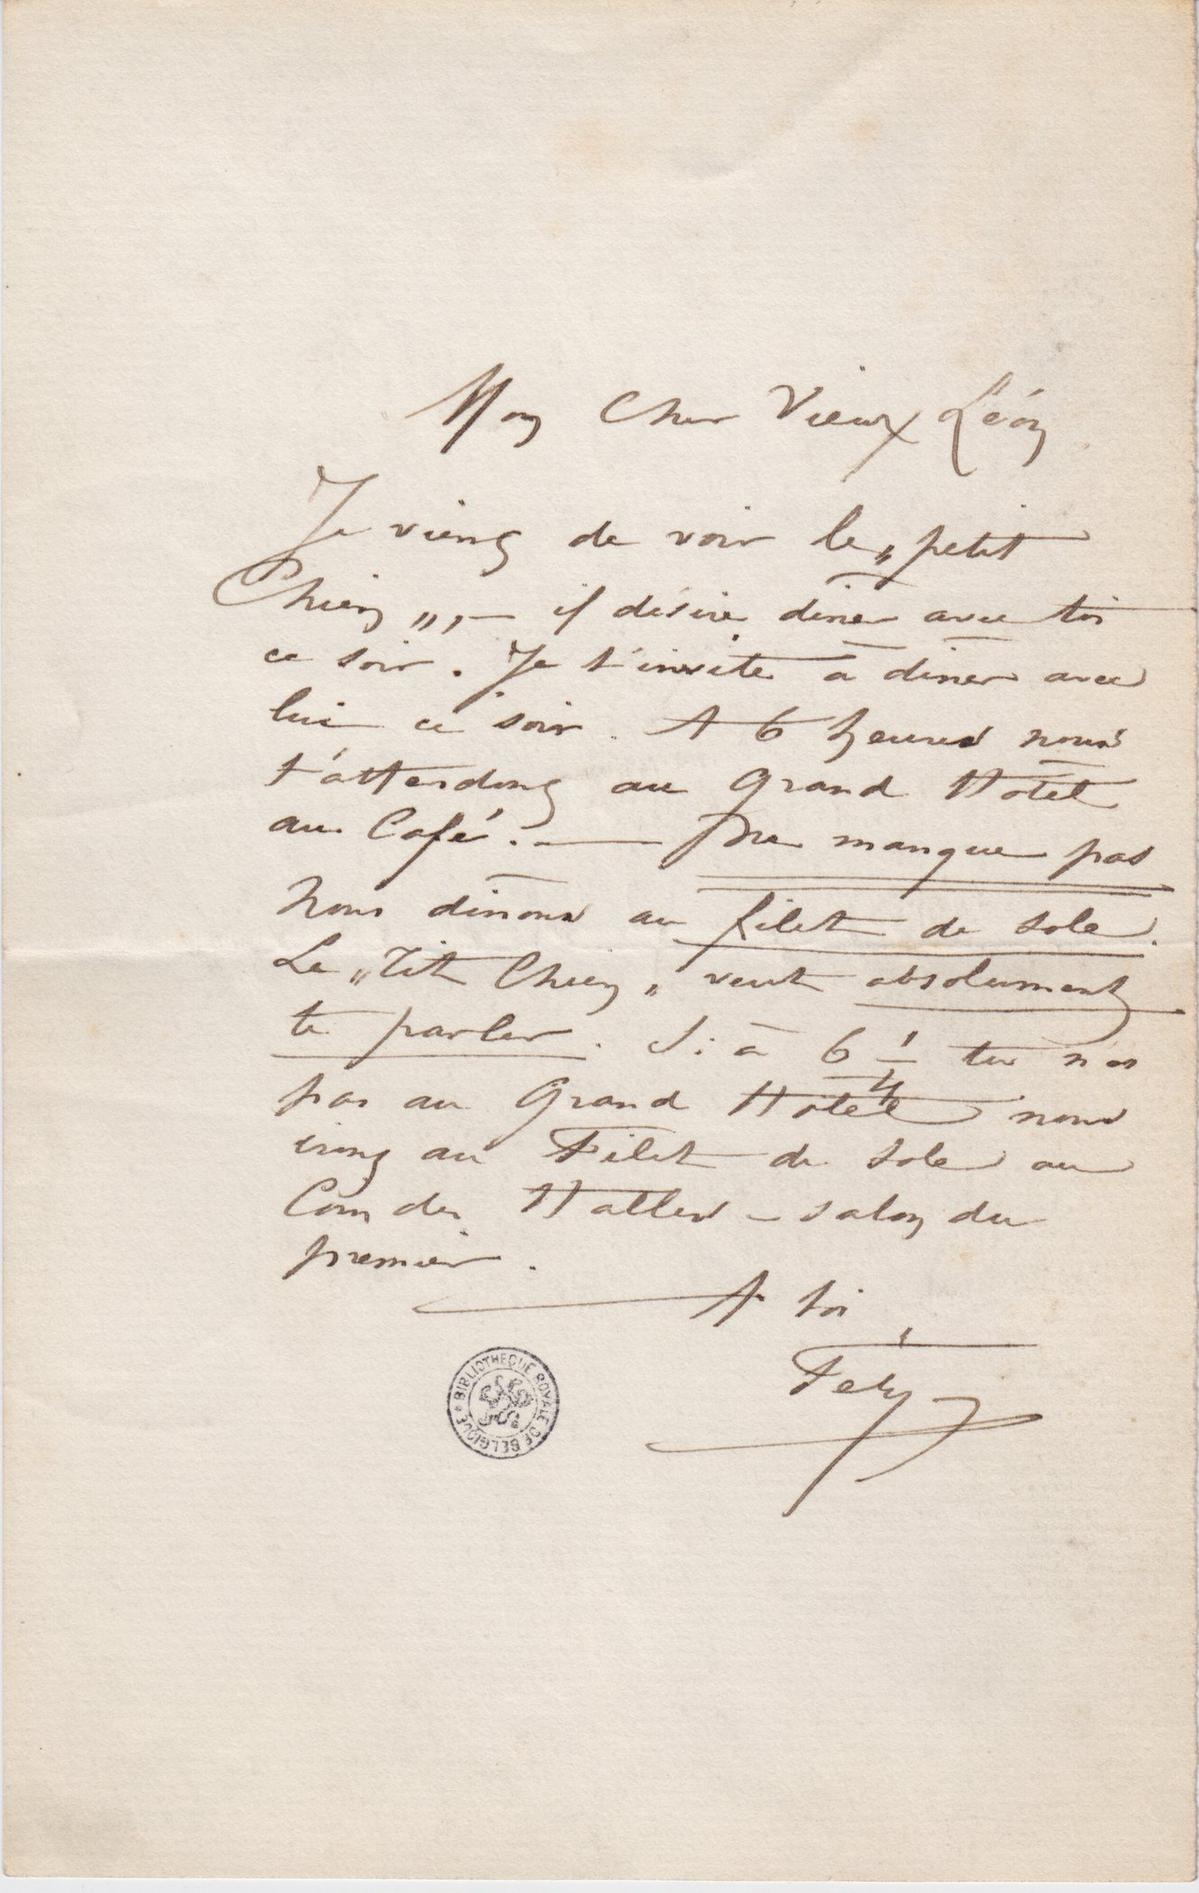 Mon Cher Vieux Léon
Je viens de voir le „petit
Chien„, — il désire diner avec toi
ce soir. Je t'invite à diner avec
lui ce soir. A 6 heures nous
t'attendons au Grand Hotel
au Café. — Ne manque pas
Nous dinons au filet de sole.
Le „Tit Chien„ veut absolument
te parler. Si à 6 1/4 tu n'es
pas au Grand Hotel nous
irons au Filet de Sole au
Coin des Halles — salon du
premier.
A toi,
Fély
BIBLIOTHEQUE ROYALE DE BELGIQUE